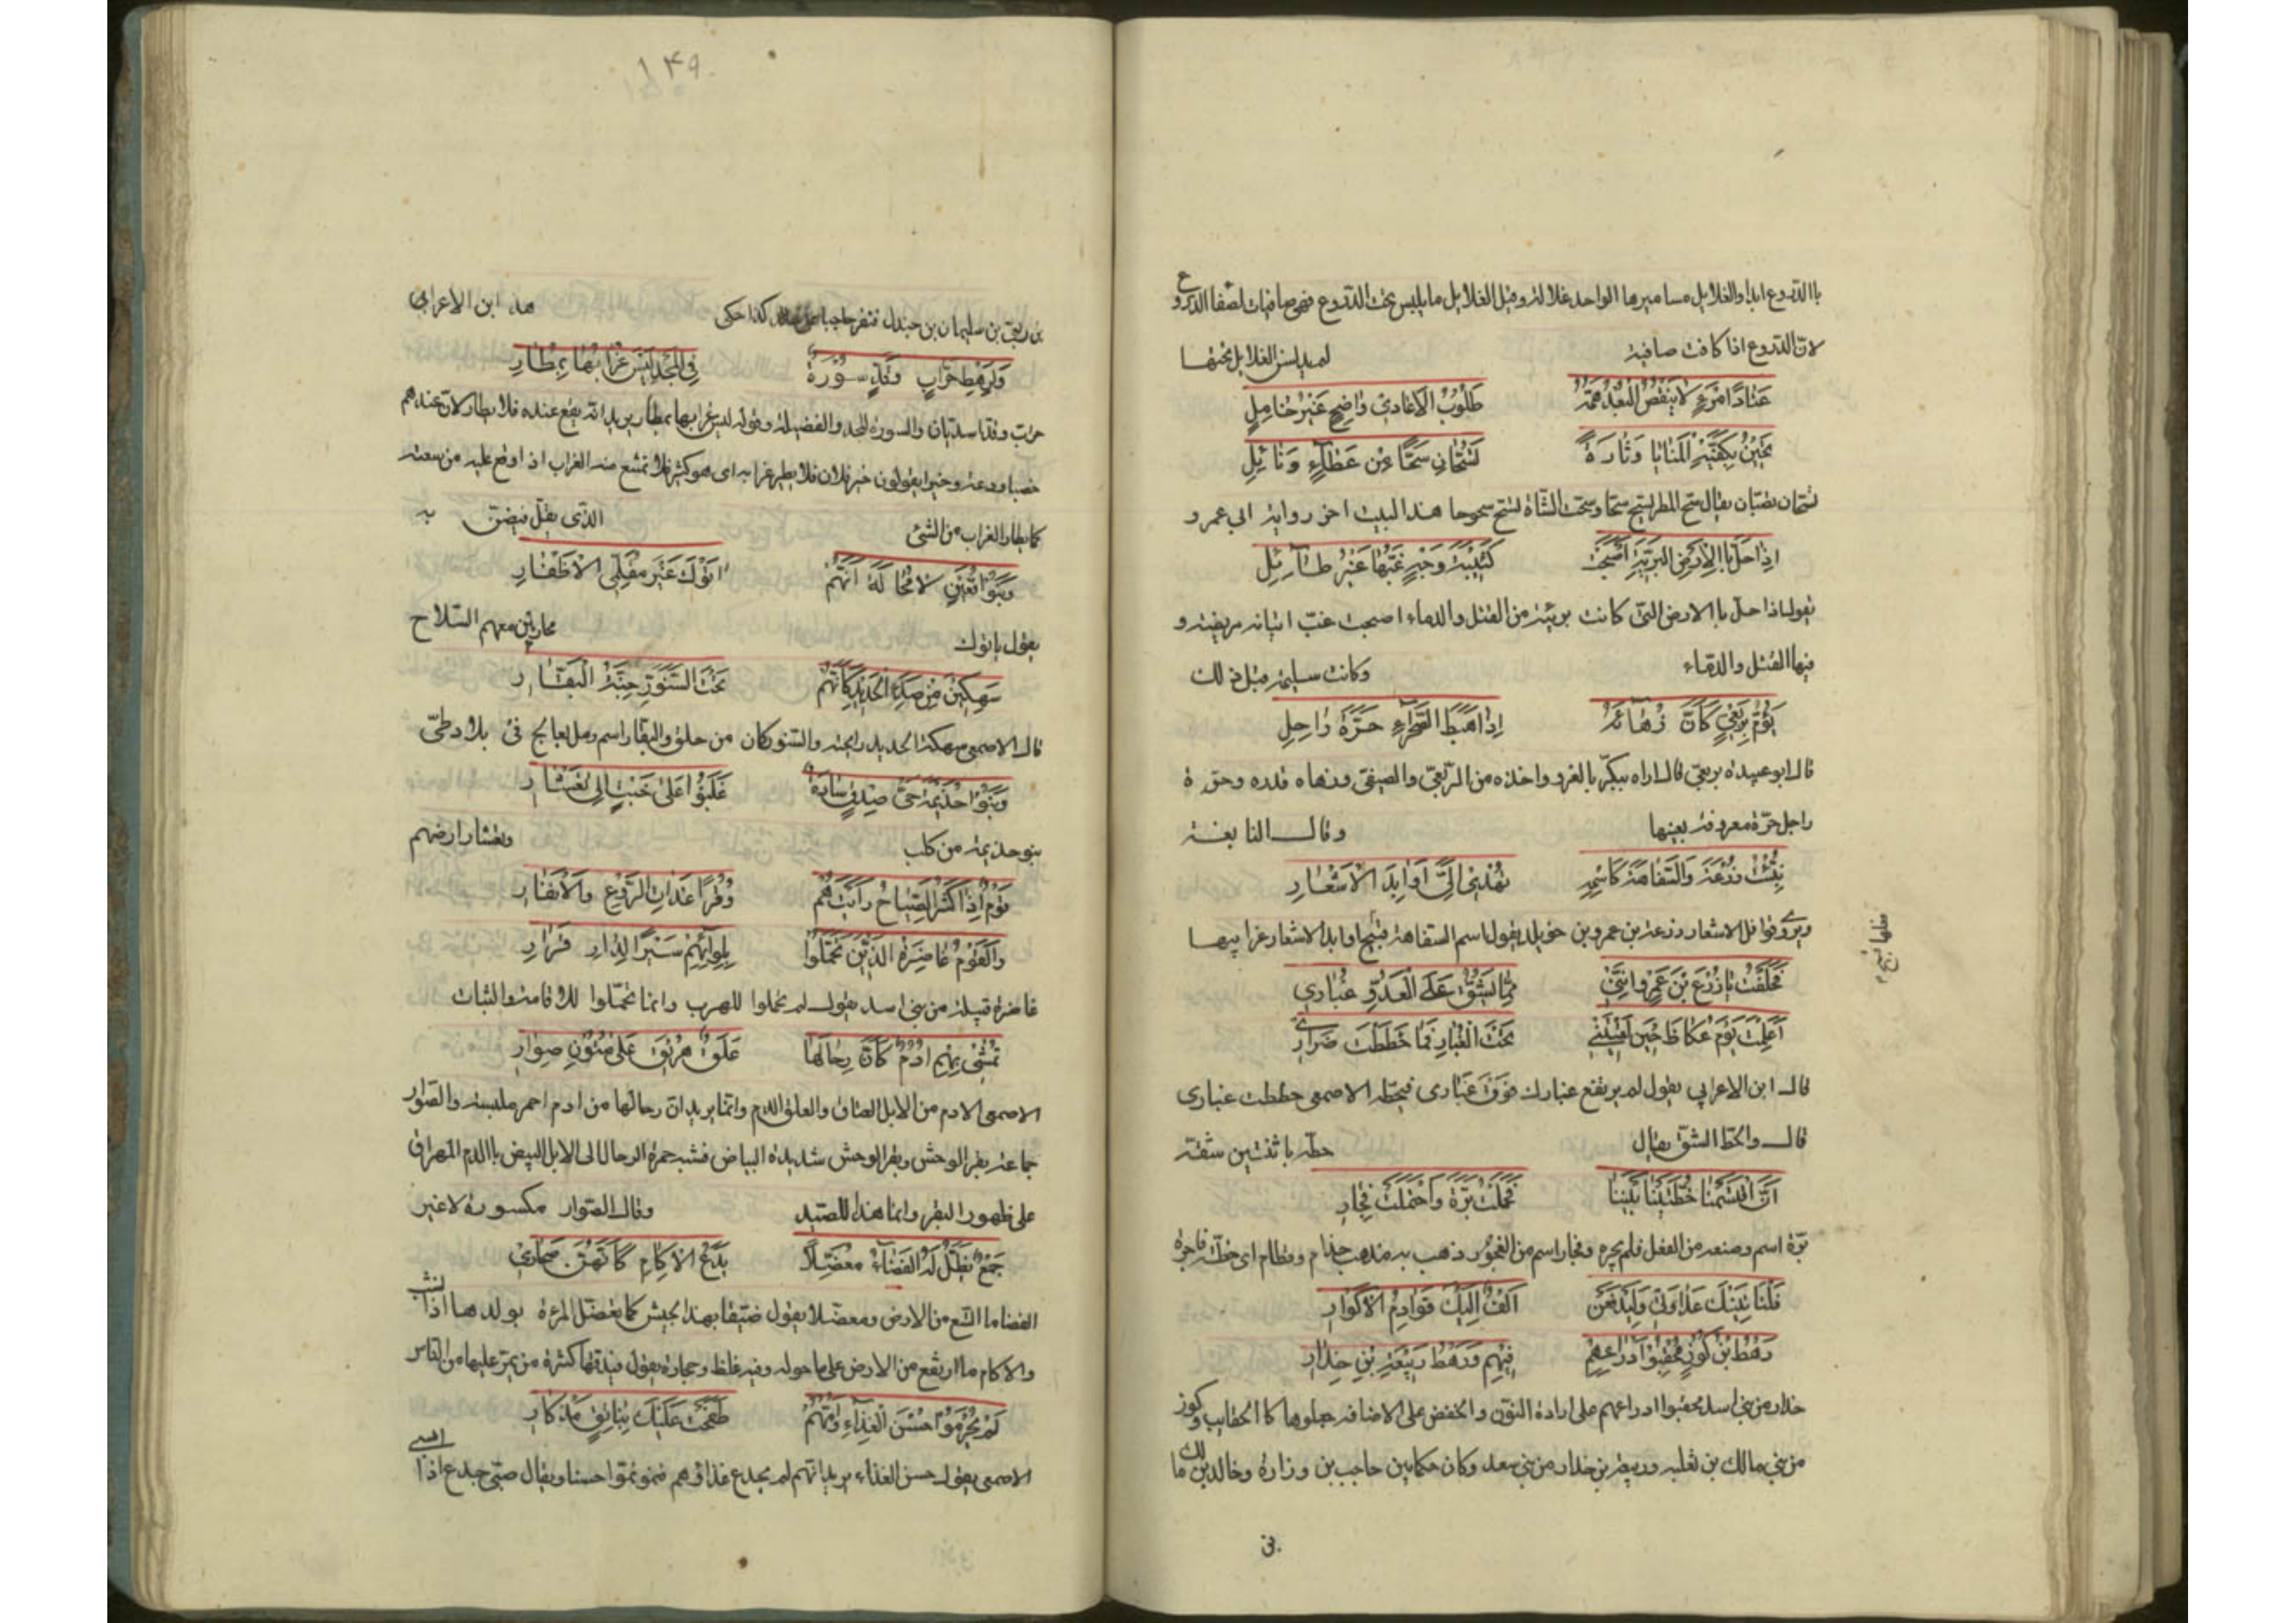 باالدروع ابدا والغلايل مساميرها الواحد غلالة وقيل الغلايل ما يلبس تحت الدروع فهي صافيات لصفا الدروع
لان الدروع اذا كانت صافية لم يدنس الغلايل تحتها
عَتَادُ امْرِئٍ لا يَنْقُضُ البُعْدُ هَمَّهُ طَلُوبُ الاعَادِي وَاضِحٍ غَيْرُ خَامِلِ
تَحِينُ بِكَفَّيْهِ المَنَايَا وَتَارَةً تَسُحَّانِ سَحًّا مِن عَطَاءٍ وَنَائِلِ
تسحان تصبان يقال سح المطر يسح سحا وسحت الشاة تسح سحوحا هذا البيت اخر رواية ابي عمرو
اِذَا حَلَّ باالارْضِ البَرِيَّةِ اصْبَحَتْ كَئِيبَةَ وَجْهٍ غِبُّهَا غَيْرُ طَائِلِ
يقول اذا حل باالارض التي كانت بريئة من القتل والدماء اصبحت غب اتيانه مريضة و
فيها القتل والدماء وكانت سليمة قبل ذلك
يَؤُمُّ بِرِبْعِيٍّ كَانَ زُهَائَهُ اِذَا هَبَطَ الصَّحْرَاءِ حَرَّةُ رَاجِلِ
قال ابو عبيدة بربعي قال اراه يبكر بالغزو واخذه من الربعي والصيفي وزهاه قدره وحرة
راجل حرة معروفة بعينها وقال النابغة
نُبِّئْتُ زُرْعَةَ وَالسَّفَاهَةُ كَاسْمِهِ يُهْدِي اِلَيَّ اَوَابِدَ الاَشْعَارِ
ويروي قوافل الاشعار زرعة بن عمرو بن خويلد يقول اسم السفاهة قبيح اوابد الاشعار غرايبها
فَحَلَفْتُ يَا زُرْعَ بْنَ عَمْرٍو اِنَّنِي مِمَّا يَشُقُّ عَلَى الْعَدُوِّ ضِرَارِي
اَعَلِمْتَ يَوْمَ عُكَاظَ حِينَ لَقِيتَنِي تَحْتَ الغُبَارِ فَمَا خَطَطْتَ غُبَارِي
قال ابن الاعرابي يقول لم يرتفع غبارك فوق غباري فيحطه الاصمعي خططت غباري
قال والخط الشق يقال خطه باثنتين شقه
اَنَّا اقْتَسَمْنَا خُطَّتَيْنَا بَيْنَنَا فَحَمَلْتُ بَرَّةَ وَاحْتَمَلْتَ فَجَارِ
برة اسم وصنعه من الفعل فلم يجره وفجار اسم من الفجور ذهب به مذهب حذام وقطام اي خطة فاجرة
فَلْتَاتِيَنَّكَ قَصَائِدٌ وَلَيَدْفَعَنْ اَلْفٌ اِلَيْكَ قَوَادِمَ الاَكْوَارِ
رَهْطُ بْنُ كُوزٍ مُحْقِبُوا اَدْرَاعِهِمْ فِيهِمْ وَرَهْطُ رَبِيعَةِ بْنِ حِذَارِ
حذار من بني اسد محقبوا ادراعهم على ارادة النون والخفض على الاضافة جعلوها كاالحقايب وكوز
من بني مالك بن ثعلبة وربيعة بن حذار من بني سعد وكان حكما بين حاجب بن وزارة وخالد بن مالك
في
١٤٩
بن ربعي بن سليمان بن جندل فنفر حاجبا كذا حكى هذا ابن الاعرابي
وَلِرَهْطِ حَرَّابٍ وَقَدٍّ سُورَةٌ فِي المَجْدِ لَيْسَ غُرَابُهَا بِمُطَارِ
حراب وقد اسديان والسورة المجد والفضيلة وقوله ليس غرابها بمطار يريد انه يقع عنده فلا يطار لان عندهم
خصبا ودعة وخيرا يقولون خير فلان فلا يطير غرابه اي هو كثير فلا تمنع منه الغراب اذا وقع عليه من سعته
كما يطار الغراب من الشئ الذي يقل فيضن به
وَبَنُو قُعَيْنٍ لا مَحَالَةَ اَنَّهُمْ اتَوْكَ غَيْرَ مُقَلَّمِي الاَظْفَارِ
يقول ياتوك محاربين معهم السلاح
سَهِكِينَ مِنْ صَدَءِ الحَدِيدِ كَاَنَّهُمْ تَحْتَ السَّنَوَّرِ جِنَّةُ البَقَّارِ
قال الاصمعي سهكة الحديد رايحته والسنور كان من حلق والبقار اسم رمل بعالج في بلاد طي
وَبَنُو جَذِيمَةَ حَيُّ صِدْقٍ سَادَةٌ غَلَبُوا عَلَى خَبْتٍ اِلَى تِعْشَارِ
بنو جذيمة من كلب وتعشار ارضهم
قَوْمٌ اِذَا كَثُرَ الصِّيَاحُ رَاَيْتَهُمْ وُقُرًا غَدَاةَ الرَّوْعِ وَالاِنْفَارِ
وَالقَوْمُ غَاضِرَةُ الَّذِينَ تَحَمَّلُوا بِلِوَائِهِمْ سَيْرًا لِدَارِ قَرَارِ
غاضرة قبيلة من بني اسد يقول لم تحملوا للهرب وانما تحملوا للاقامة والثبات
تَمْشِي بِهِمْ اُدْمٌ كَاَنَّ رِحَالَهَا عَلَقٌ هُرِيقَ عَلَى مُتُونِ صِوَارِ
الاصمعي الادم من الابل العتاق والعلق الدم وانما يريد ان رحالها من ادم احمر ملبسة والصوار
جماعة بقر الوحش وبقر الوحش شديدة البياض فشبه حمرة الرحال الى الابل البيض باالدم المهراق
على ظهور البقر وانما هذا للصيد وقال الصوار مكسورة لا غير
جَمْعٌ يَظَلُّ لَهُ الفَضَاءُ مُعَضِّلاً يَدَعُ الاِكَامَ كَاَنَّهُنَّ صَحَارِي
الفضا ما اتسع من الارض ومعضلا يقول ضيقا بهذا الجيش كما تعضل المرءة بولدها اذا نشب
والاكام ما ارتفع من الارض على ما حوله وفيه غلظ وحجارة يقول فيدقها كثرة من يمر عليها من الناس
لَمْ يُحْرَمُوا حُسْنَ الْغِذَاءِ وَاُمُّهُمْ طَفَحَتْ عَلَيْكَ بِنَاتِقٍ مِذْكَارِ
الاصمعي يقول حسن الغذاء يريد انهم لم يجدع غذاؤهم فنمو نموا حسنا ويقال صبي جدع اذا